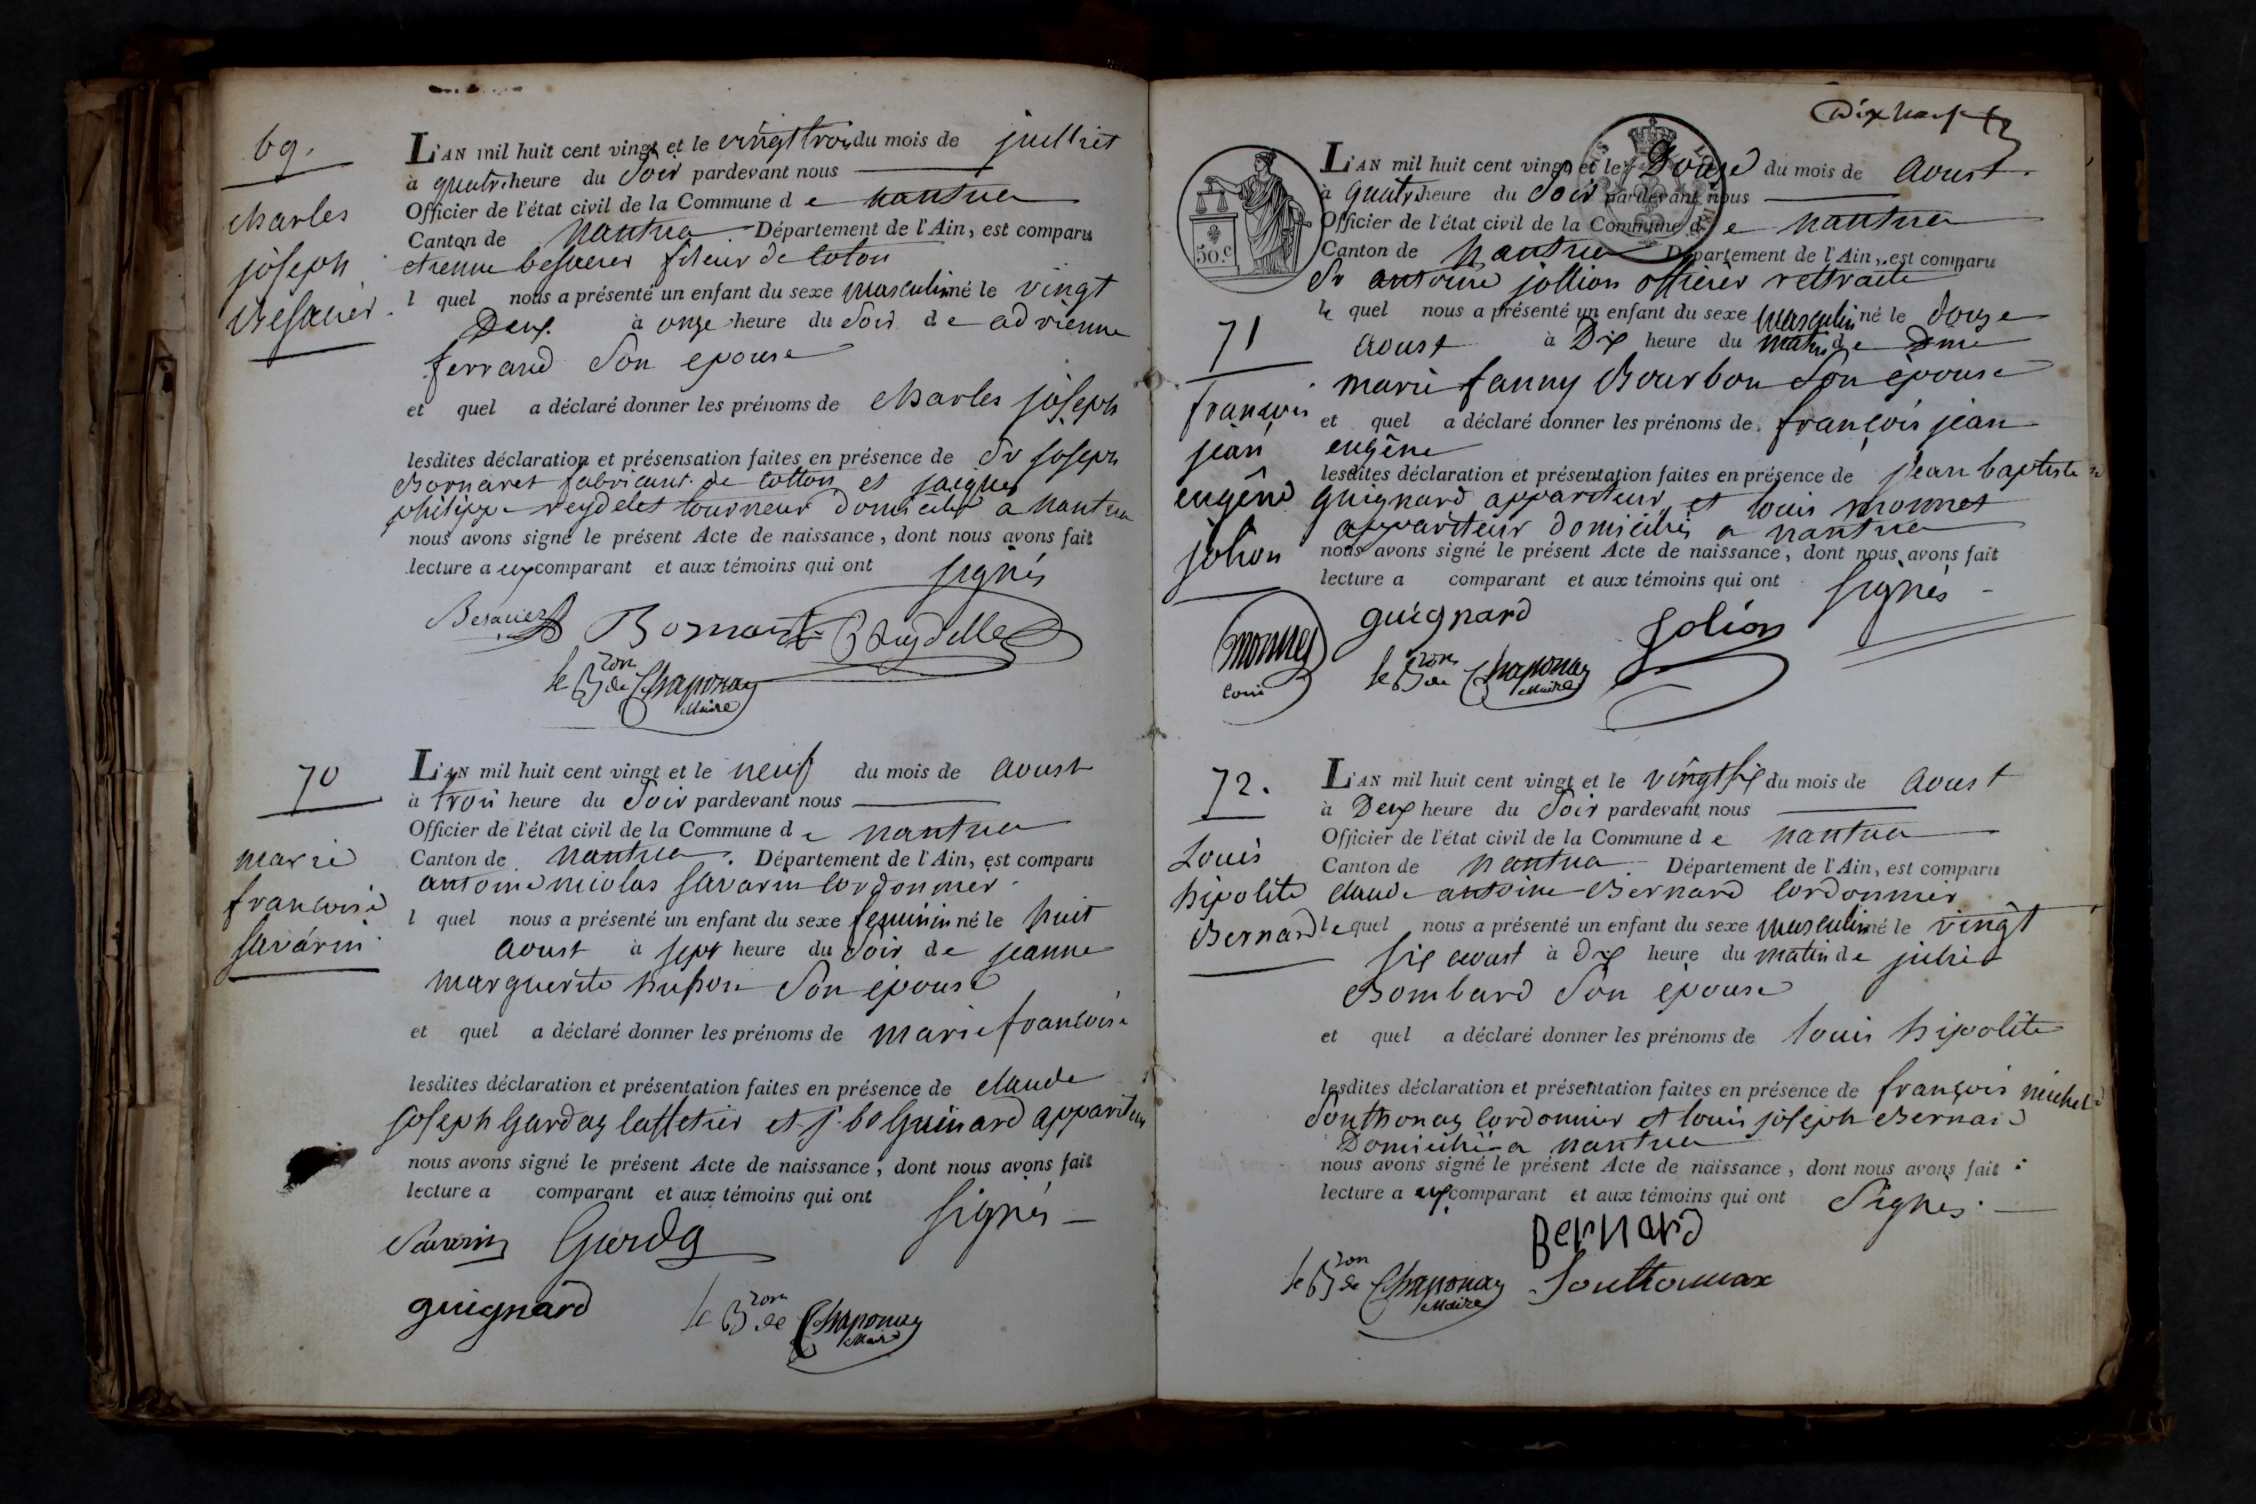 69.
charles
joseph
Besacier
L'AN mil huit cent vingt et le vingt trois du mois de juilliet
à quatre heure du Soir pardevant nous
Officier de l'état civil de la Commune d e nantua
Canton de Nantua Département de l'Ain, est comparu
etienne besacier fileur de coton
l quel nous a présenté un enfant du sexe masculin né le vingt
Deux à onze heure du Soir de adrienne
ferrand Son epouse
et quel a déclaré donner les prénoms de charles joseph
lesdites déclaration et présensation faites en présence de Sr joseph
Bornaret fabricant de cotton et jacques
philippe reydelet tourneur domiciliés a nantua
nous avons signé le présent Acte de naissance, dont nous avons fait
lecture a eux comparant et aux témoins qui ont signés
Besacier Reydellet
le Bron de Chaponay
Maire
70
marie
francoise
Savarin
L'AN mil huit cent vingt et le neuf du mois de aoust
à trois heure du Soir pardevant nous
Officier de l'état civil de la Commune d e nantua
Canton de nantua. Département de l'Ain, est comparu
antoine nicolas Savarin cordonnier
l quel nous a présenté un enfant du sexe feminin né le huit
aoust à sept heure du Soir de jeanne
marguerite husson Son epouse
et quel a déclaré donner les prénoms de marie francoise
lesdites déclaration et présentation faites en présence de claude
joseph Garday caffetier et j. bte Guinard appariteur
nous avons signé le présent Acte de naissance, dont nous avons fait
lecture a comparant et aux témoins qui ont signés
Savarin
guignard le Bron de Chaponay
Maire
Dix neuf
50 c
L'AN mil huit cent vingt et le Douze du mois de aoust
à quatre heure du Soir pardevant nous
Officier de l'état civil de la Commune d e nantua
Canton de Nantua Département de l'Ain, est comparu
Sr antoine jollion officier rettraite
le quel nous a présenté un enfant du sexe masculin né le douze
aoust à Dix heure du matin de Dme
marie fanny Bourbon Son epouse
et quel a déclaré donner les prénoms de françois jean
eugêne
lesdites déclaration et présentation faites en présence de jean baptiste
guignard appariteur et louis monnet
appariteur domiciliés a nantua
nous avons signé le présent Acte de naissance, dont nous avons fait
lecture a comparant et aux témoins qui ont signés
71
françois
jean
eugêne
jolion
monnet
louis
guignard
Jolion
le Bron de Chaponay
Maire
72.
Louis
hipolite
Bernard
L'AN mil huit cent vingt et le vingt six du mois de aoust
à Deux heure du Soir pardevant nous
Officier de l'état civil de la Commune d e nantua
Canton de nantua Département de l'Ain, est comparu
claude antoine Bernard cordonnier
le quel nous a présenté un enfant du sexe masculin né le vingt
six aoust à dix heure du matin de julie
Bombard Son epouse
et quel a déclaré donner les prénoms de louis hipolite
lesdites déclaration et présentation faites en présence de françois michel
Southonay cordonnier et louis joseph Bernard
Domiciliés a nantua
nous avons signé le présent Acte de naissance, dont nous avons fait
lecture a eux comparant et aux témoins qui ont Signés.
Bernard
le Bron de Chaponay
Maire